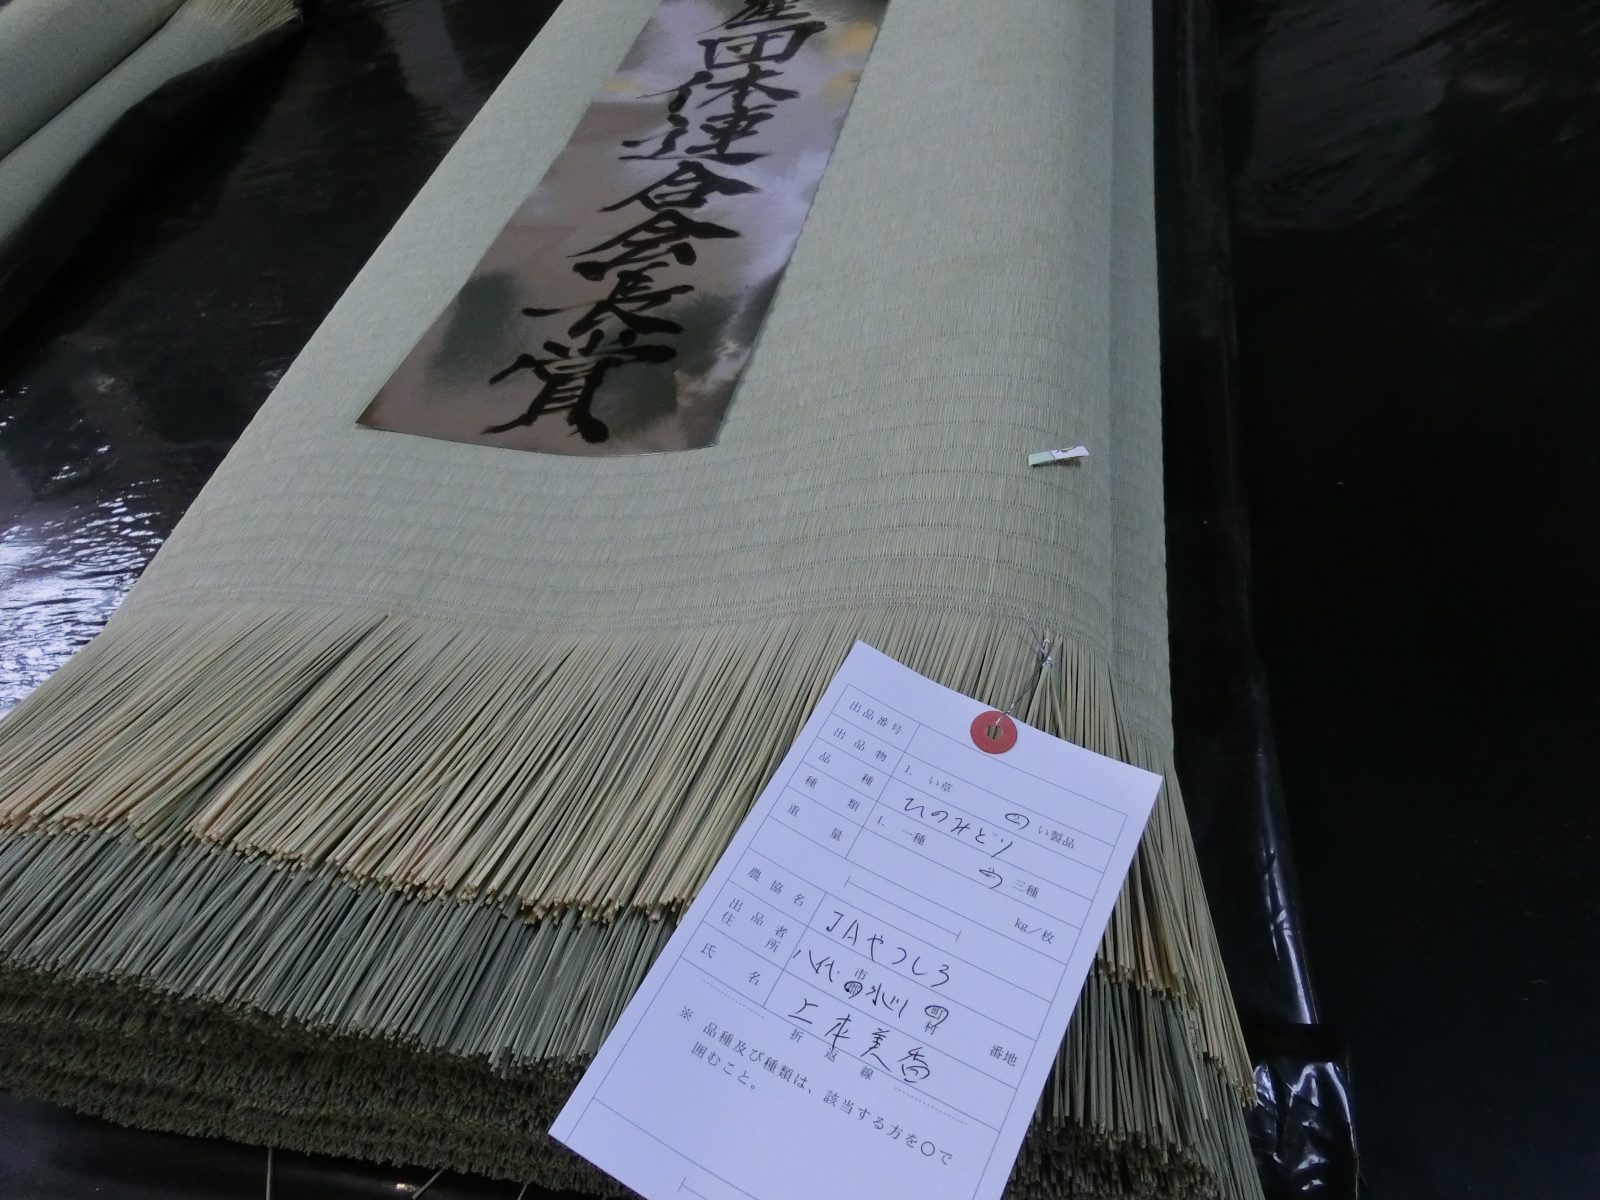 団体連合会長賞
出品番号
出品物 1. い草 2 い製品
品種 ひのみどり
種類 1. 一種 三種
重量 kg/枚
農協名 JAやつしろ
出品者住所 八代 市郡 氷川 町村 番地
氏名 上本美香
折返線
※ 品種及び種類は、該当する方を〇で
囲むこと。